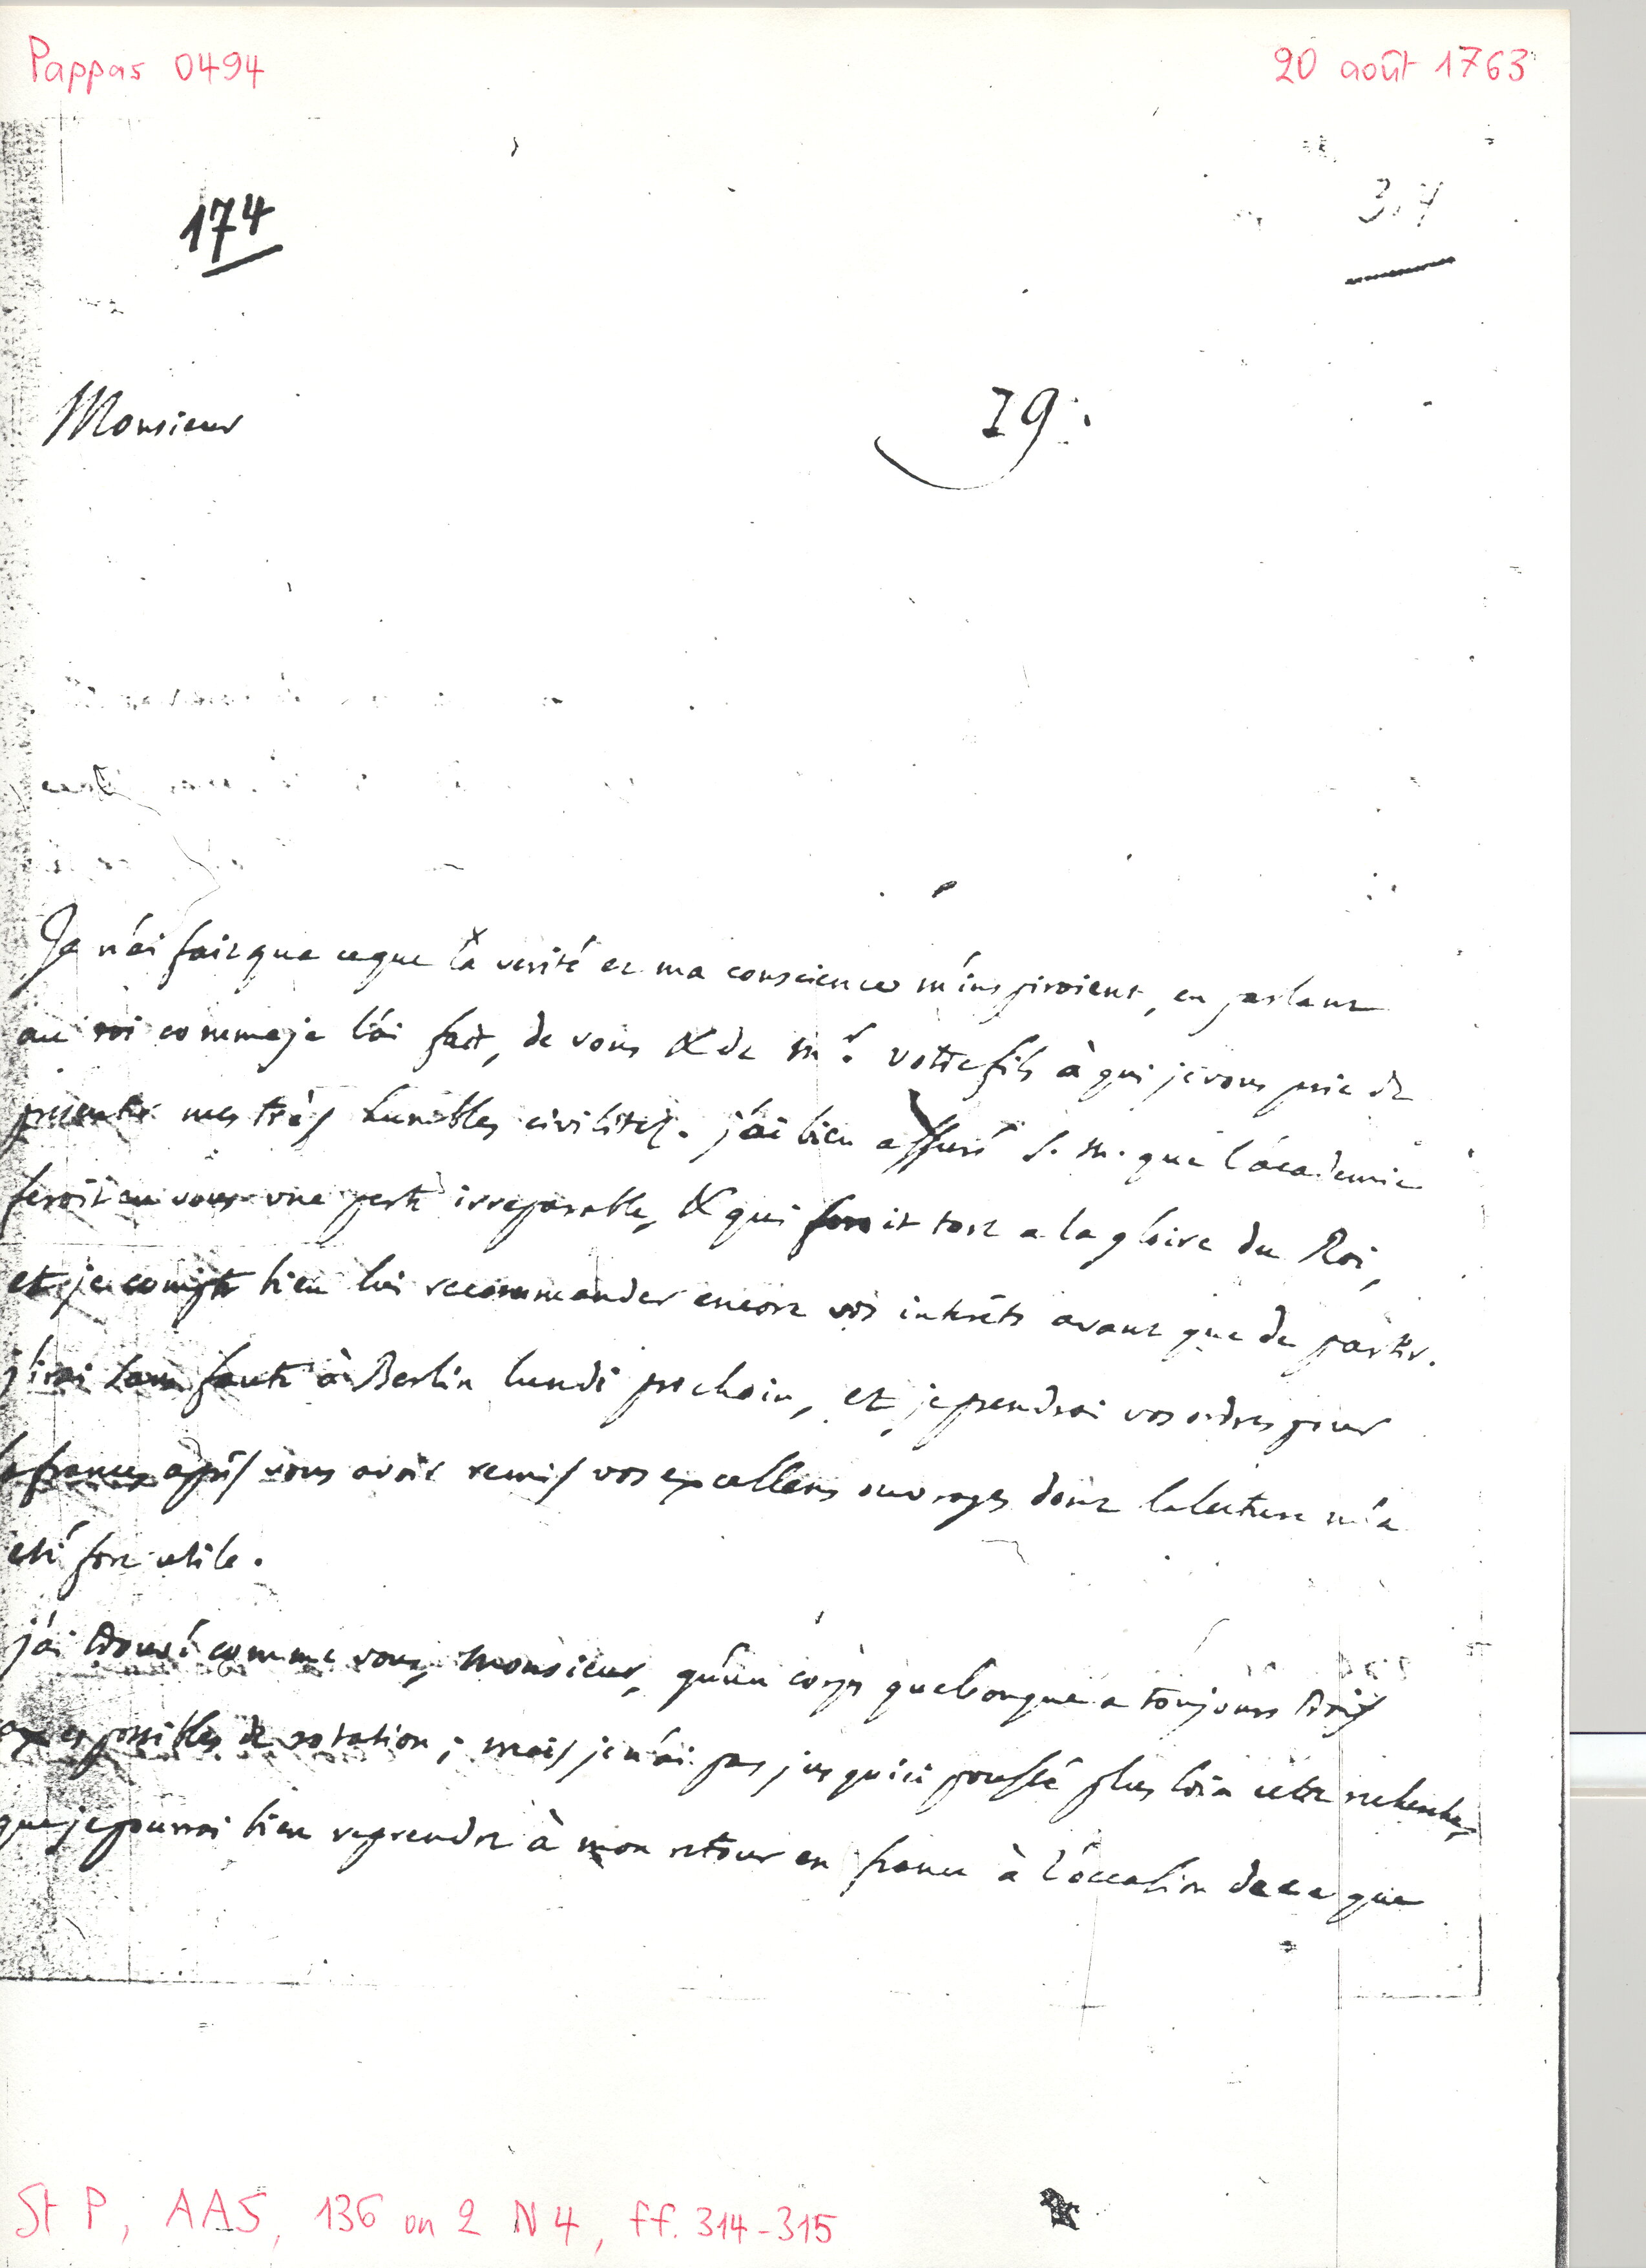 Pappas 0494
20 août 1763
174
314
Monsieur
79.
Je n'ai fait que ce que la verité et ma conscience m'inspiroient, en parlant
au roi comme je l'ai fait, de vous & de Mr. votre fils à qui je vous prie de
presenter mes très humbles civilitez. j'ai bien assuré S. M. que l'academie
feroit en vous une perte irreparable, & qui feroit tort a la gloire du Roi,
et je compte bien lui recommander encore vos interêts avant que de partir.
j'irai sans faute à Berlin lundi prochain, et je prendrai vos ordres pour
la france après vous avoir remis vos excellens ouvrages dont la lecture m'a
eté fort utile.
j'ai trouvé comme vous, Monsieur, qu'un corps quelconque a toujours trois
axes possibles de rotation ; mais je n'ai pas jusqu'ici poussé plus loin cette recherche,
que je pourrai bien reprendre à mon retour en france à l'occasion de ce que
St P, AAS, 136 on 2 N 4, ff. 314-315